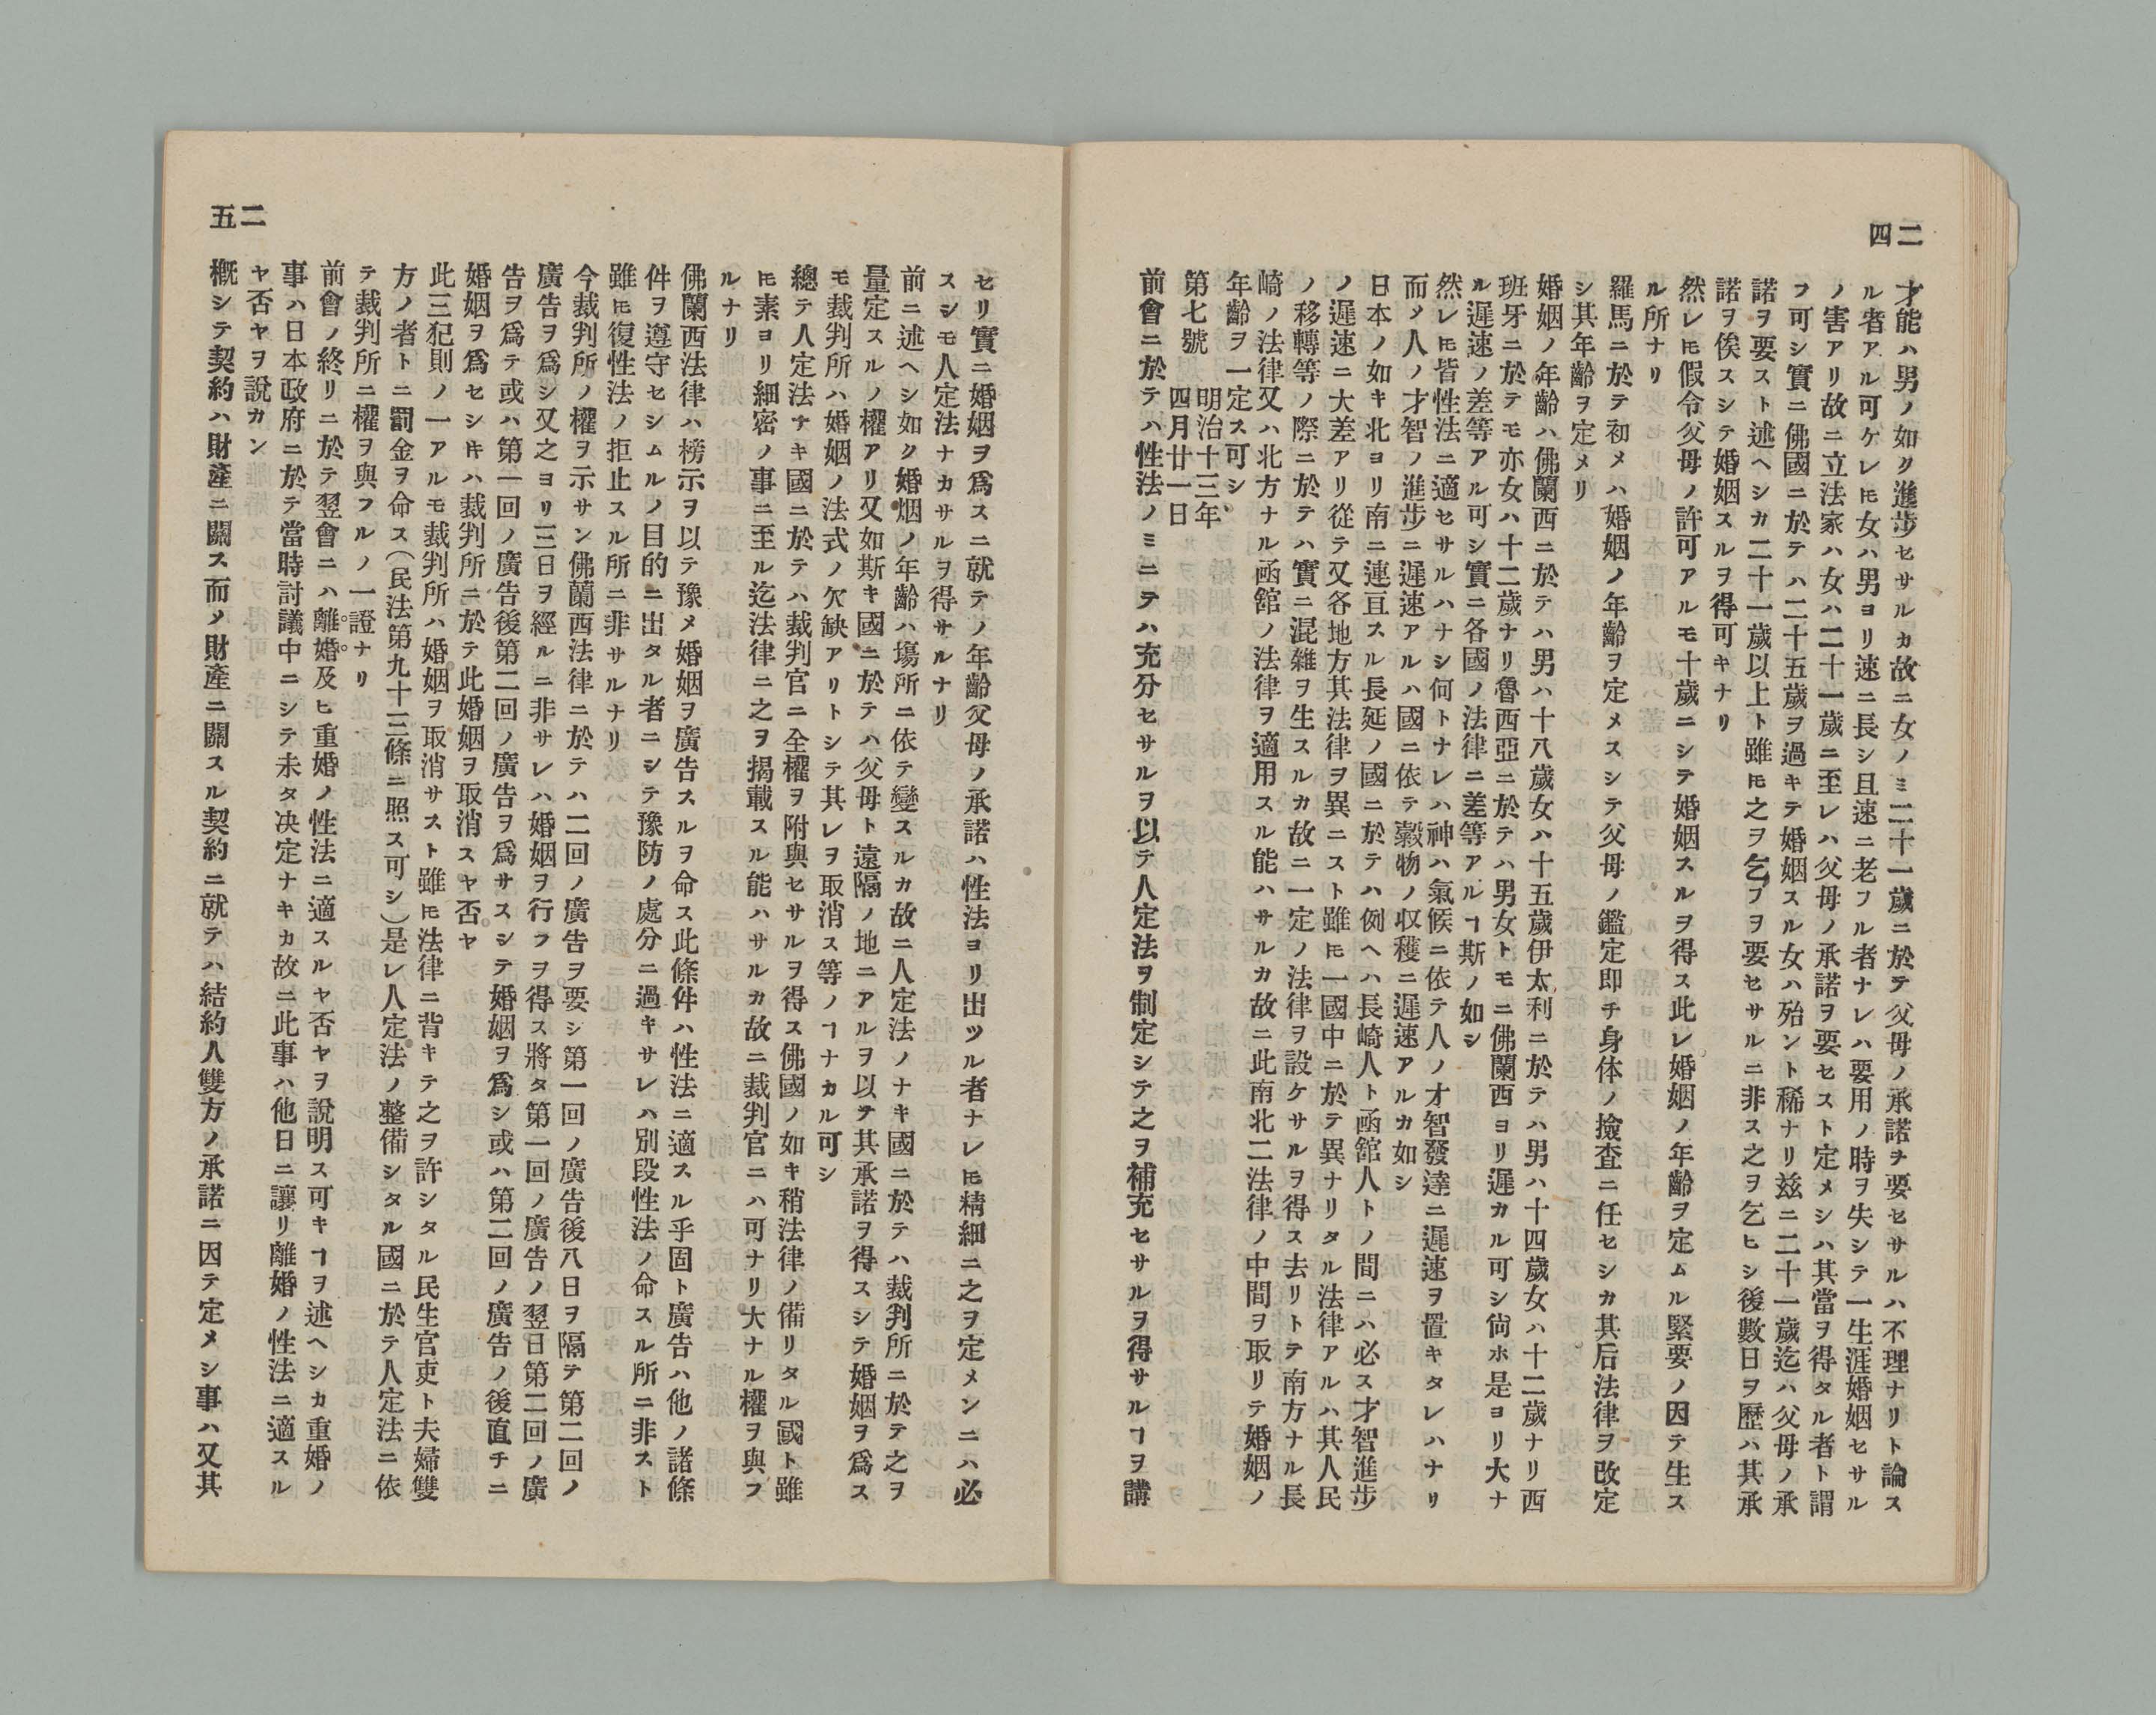 二四
才能ハ男ノ如ク進步セサルカ故ニ女ノミ二十一歲ニ於テ父母ノ承諾ヲ要セサルハ不理ナリト論ス
ル者アル可ケレ𪜈女ハ男ヨリ速ニ長シ且速ニ老フル者ナレハ要用ノ時ヲ失シテ一生涯婚姻セサル
ノ害アリ故ニ立法家ハ女ハ二十一歲ニ至レハ父母ノ承諾ヲ要セスト定メシハ其當ヲ得タル者ト謂
フ可シ實ニ佛國ニ於テハ二十五歲ヲ過キテ婚姻スル女ハ殆ント稀ナリ玆ニ二十一歲迄ハ父母ノ承
諾ヲ要スト述ヘシカ二十一歲以上ト雖𪜈之ヲ乞フヲ要セサルニ非ス之ヲ乞ヒシ後數日ヲ歷ハ其承
諾ヲ俟スシテ婚姻スルヲ得可キナリ
然レ𪜈假令父母ノ許可アルモ十歲ニシテ婚姻スルヲ得ス此レ婚姻ノ年齡ヲ定ムル緊要ノ因テ生ス
ル所ナリ
羅馬ニ於テ初メハ婚姻ノ年齡ヲ定メスシテ父母ノ鑑定即チ身体ノ撿査ニ任セシカ其后法律ヲ改定
シ其年齡ヲ定メリ
婚姻ノ年齡ハ佛蘭西ニ於テハ男ハ十八歲女ハ十五歲伊太利ニ於テハ男ハ十四歲女ハ十二歲ナリ西
班牙ニ於テモ亦女ハ十二歲ナリ魯西亞ニ於テハ男女トモニ佛蘭西ヨリ遲カル可シ尙ホ是ヨリ大ナ
ル遲速ノ差等アル可シ實ニ各國ノ法律ニ差等アルヿ斯ノ如シ
然レ𪜈皆性法ニ適セサルハナシ何トナレハ神ハ氣候ニ依テ人ノ才智發達ニ遲速ヲ置キタレハナリ
而〆人ノ才智ノ進步ニ遲速アルハ國ニ依テ穀物ノ収穫ニ遲速アルカ如シ
日本ノ如キ北ヨリ南ニ連亘スル長延ノ國ニ於テハ例ヘハ長崎人ト函館人トノ間ニハ必ス才智進步
ノ遲速ニ大差アリ從テ又各地方其法律ヲ異ニスト雖𪜈一國中ニ於テ異ナリタル法律アルハ其人民
ノ移轉等ノ際ニ於テハ實ニ混雜ヲ生スルカ故ニ一定ノ法律ヲ設ケサルヲ得ス去リトテ南方ナル長
崎ノ法律又ハ北方ナル函館ノ法律ヲ適用スル能ハサルカ故ニ此南北二法律ノ中間ヲ取リテ婚姻ノ
年齡ヲ一定ス可シ
第七號 明治十三年四月廿一日
前會ニ於テハ性法ノミニテハ充分セサルヲ以テ人定法ヲ制定シテ之ヲ補充セサルヲ得サルヿヲ講
二五
セリ實ニ婚姻ヲ爲スニ就テノ年齡父母ノ承諾ハ性法ヨリ出ツル者ナレ𪜈精細ニ之ヲ定メンニハ必
スシモ人定法ナカサルヲ得サルナリ
前ニ述ヘシ如ク婚烟ノ年齡ハ塲所ニ依テ變スルカ故ニ人定法ノナキ國ニ於テハ裁判所ニ於テ之ヲ
量定スルノ權アリ又如斯キ國ニ於テハ父母ト遠隔ノ地ニアルヲ以テ其承諾ヲ得スシテ婚姻ヲ爲ス
モ裁判所ハ婚姻ノ法式ノ欠缺アリトシテ其レヲ取消ス等ノヿナカル可シ
總テ人定法ナキ國ニ於テハ裁判官ニ全權ヲ附與セサルヲ得ス佛國ノ如キ稍法律ノ備リタル國ト雖
𪜈素ヨリ細密ノ事ニ至ル迄法律ニ之ヲ揭載スル能ハサルカ故ニ裁判官ニハ可ナリ大ナル權ヲ與フ
ルナリ
佛蘭西法律ハ榜示ヲ以テ豫メ婚姻ヲ廣告スルヲ命ス此條件ハ性法ニ適スル乎固ト廣告ハ他ノ諸條
件ヲ遵守セシムルノ目的ニ出タル者ニシテ豫防ノ處分ニ過キサレハ別段性法ノ命スル所ニ非スト
雖𪜈復性法ノ拒止スル所ニ非サルナリ
今裁判所ノ權ヲ示サン佛蘭西法律ニ於テハ二回ノ廣告ヲ要シ第一回ノ廣告後八日ヲ隔テ第二回ノ
廣告ヲ爲シ又之ヨリ三日ヲ經ルニ非サレハ婚姻ヲ行フヲ得ス將タ第一回ノ廣告ノ翌日第二回ノ廣
告ヲ爲テ或ハ第一回ノ廣告後第二回ノ廣告ヲ爲サスシテ婚姻ヲ爲シ或ハ第二回ノ廣告ノ後直チニ
婚姻ヲ爲セシ𪜈ハ裁判所ニ於テ此婚姻ヲ取消スヤ否ヤ
此三犯則ノ一アルモ裁判所ハ婚姻ヲ取消サスト雖𪜈法律ニ背キテ之ヲ許シタル民生官吏ト夫婦雙
方ノ者トニ罰金ヲ命ス（民法第九十三條ニ照ス可シ）是レ人定法ノ整備シタル國ニ於テ人定法ニ依
テ裁判所ニ權ヲ與フルノ一證ナリ
前會ノ終リニ於テ翌會ニハ離婚及ヒ重婚ノ性法ニ適スルヤ否ヤヲ說明ス可キヿヲ述ヘシカ重婚ノ
事ハ日本政府ニ於テ當時討議中ニシテ未タ决定ナキカ故ニ此事ハ他日ニ讓リ離婚ノ性法ニ適スル
ヤ否ヤヲ說カン
概シテ契約ハ財產ニ關ス而〆財產ニ關スル契約ニ就テハ結約人雙方ノ承諾ニ因テ定メシ事ハ又其